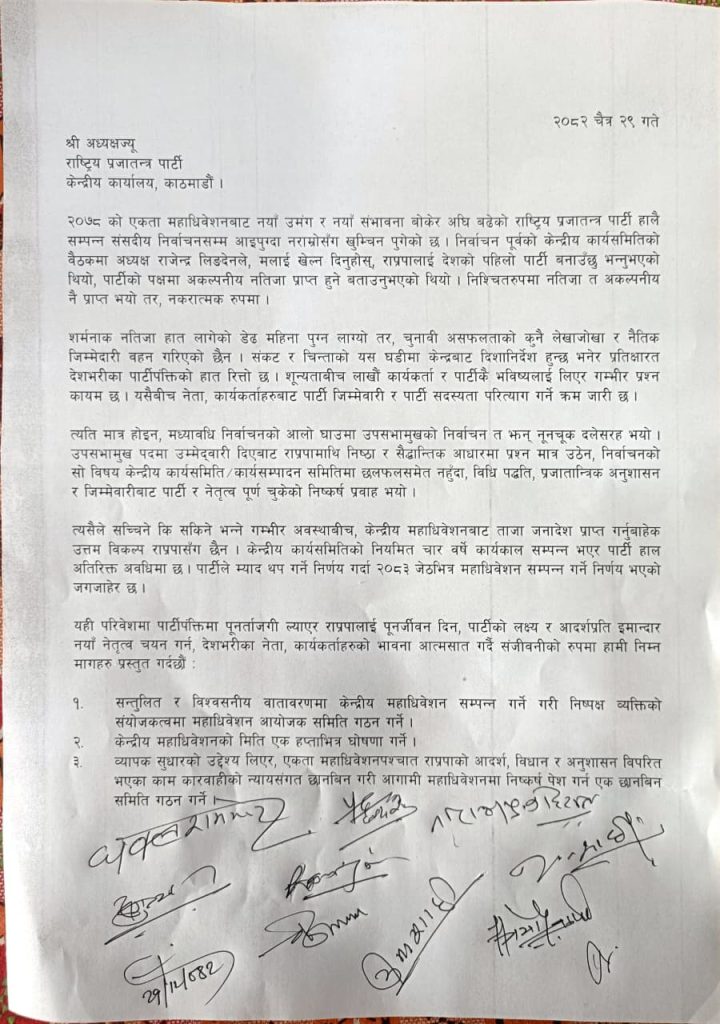 २०८२ चैत्र २९ गते
श्री अध्यक्षज्यू
राष्ट्रिय प्रजातन्त्र पार्टी
केन्द्रीय कार्यालय, काठमाडौं ।
२०७८ को एकता महाधिवेशनबाट नयाँ उमंग र नयाँ संभावना बोकेर अघि बढेको राष्ट्रिय प्रजातन्त्र पार्टी हालै
सम्पन्न संसदीय निर्वाचनसम्म आइपुग्दा नराम्रोसँग खुम्चिन पुगेको छ । निर्वाचन पूर्वको केन्द्रीय कार्यसमितिको
बैठकमा अध्यक्ष राजेन्द्र लिङदेनले, मलाई खेल्न दिनुहोस्, राप्रपालाई देशको पहिलो पार्टी बनाउँछु भन्नुभएको
थियो, पार्टीको पक्षमा अकल्पनीय नतिजा प्राप्त हुने बताउनुभएको थियो । निश्चितरुपमा नतिजा त अकल्पनीय
नै प्राप्त भयो तर, नकरात्मक रुपमा ।
शर्मनाक नतिजा हात लागेको डेढ महिना पुग्न लाग्यो तर, चुनावी असफलताको कुनै लेखाजोखा र नैतिक
जिम्मेदारी वहन गरिएको छैन । संकट र चिन्ताको यस घडीमा केन्द्रबाट दिशानिर्देश हुन्छ भनेर प्रतिक्षारत
देशभरीका पार्टीपंक्तिको हात रित्तो छ । शून्यताबीच लाखौं कार्यकर्ता र पार्टीकै भविष्यलाई लिएर गम्भीर प्रश्न
कायम छ । यसैबीच नेता, कार्यकर्ताहरुबाट पार्टी जिम्मेवारी र पार्टी सदस्यता परित्याग गर्ने क्रम जारी छ ।
त्यति मात्र होइन, मध्यावधि निर्वाचनको आलो घाउमा उपसभामुखको निर्वाचन त झन् नूनचूक दलेसरह भयो ।
उपसभामुख पदमा उम्मेद्वारी दिएबाट राप्रपामाथि निष्ठा र सैद्धान्तिक आधारमा प्रश्न मात्र उठेन, निर्वाचनको
सो विषय केन्द्रीय कार्यसमिति/कार्यसम्पादन समितिमा छलफलसमेत नहुँदा, विधि पद्धति, प्रजातान्त्रिक अनुशासन
र जिम्मेवारीबाट पार्टी र नेतृत्व पूर्ण चुकेको निष्कर्ष प्रवाह भयो ।
त्यसैले सच्चिने कि सकिने भन्ने गम्भीर अवस्थाबीच, केन्द्रीय महाधिवेशनबाट ताजा जनादेश प्राप्त गर्नुबाहेक
उत्तम विकल्प राप्रपासँग छैन । केन्द्रीय कार्यसमितिको नियमित चार वर्षे कार्यकाल सम्पन्न भएर पार्टी हाल
अतिरिक्त अवधिमा छ । पार्टीले म्याद थप गर्ने निर्णय गर्दा २०८३ जेठभित्र महाधिवेशन सम्पन्न गर्ने निर्णय भएको
जगजाहेर छ ।
यही परिवेशमा पार्टीपंक्तिमा पूनर्ताजगी ल्याएर राप्रपालाई पूनर्जीवन दिन, पार्टीको लक्ष्य र आदर्शप्रति इमान्दार
नयाँ नेतृत्व चयन गर्न, देशभरीका नेता, कार्यकर्ताहरुको भावना आत्मसात गर्दै संजीवनीको रुपमा हामी निम्न
मागहरु प्रस्तुत गर्दछौं :
१. सन्तुलित र विश्वसनीय वातावरणमा केन्द्रीय महाधिवेशन सम्पन्न गर्ने गरी निष्पक्ष व्यक्तिको
संयोजकत्वमा महाधिवेशन आयोजक समिति गठन गर्ने ।
२. केन्द्रीय महाधिवेशनको मिति एक हप्ताभित्र घोषणा गर्ने ।
३. व्यापक सुधारको उद्देश्य लिएर, एकता महाधिवेशनपश्चात राप्रपाको आदर्श, विधान र अनुशासन विपरित
भएका काम कारवाहीको न्यायसंगत छानबिन गरी आगामी महाधिवेशनमा निष्कर्ष पेश गर्न एक छानबिन
समिति गठन गर्ने ।
२९/१२/०८२